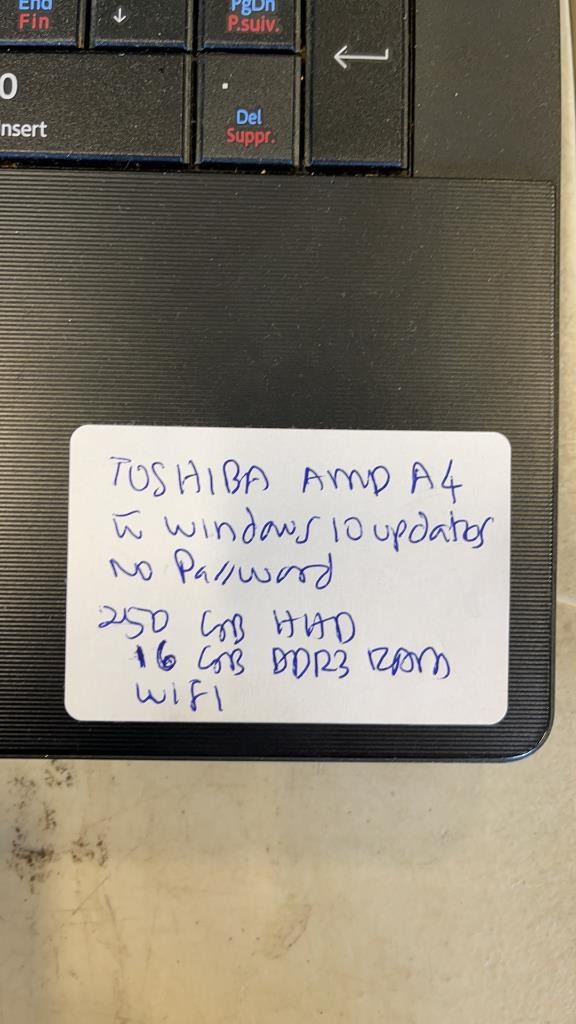 End
Fin
↓
PgDn
P.suiv.
0
nsert
.
Del
Suppr.
TOSHIBA AMD A4
w̄ windows 10 updates
NO Password
250 GB HHD
16 GB DDR3 RAM
WIFI